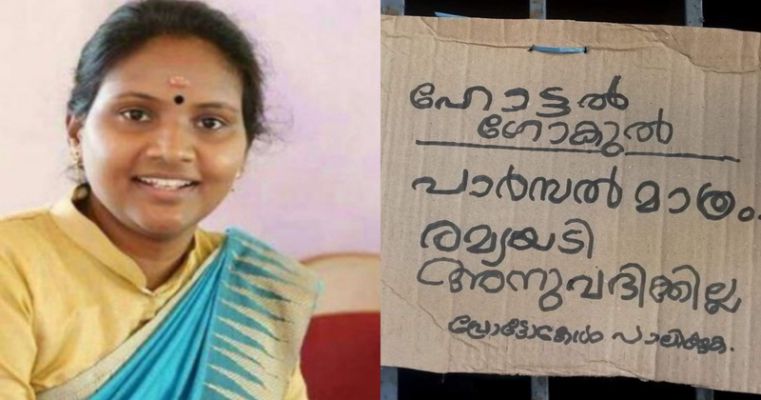 ഹോട്ടൽ
ഗോകുൽ
പാർസൽ മാത്രം.
രമ്യയടി
അനുവദിക്കില്ല
പ്രോട്ടോകോൾ പാലിക്കുക.